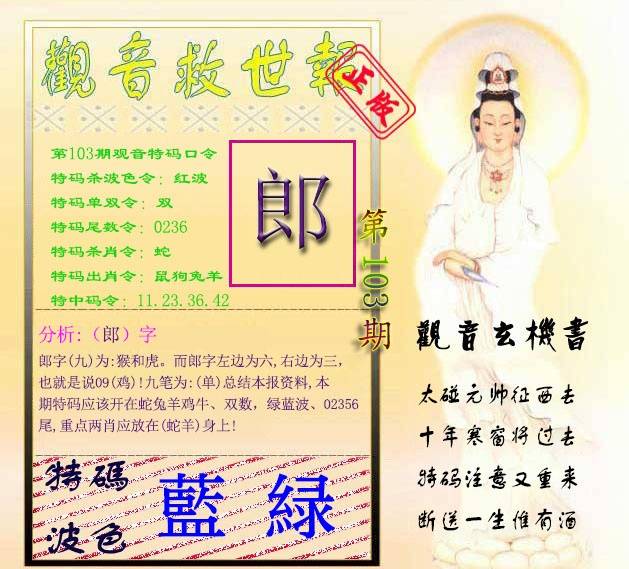 觀音救世報
正版
第103期观音特码口令
特码杀波色令：红波
特码单双令：双
特码尾数令：0236
特码杀肖令：蛇
特码出肖令：鼠狗兔羊
特中码令：11.23.36.42
郎
第103期
分析:（郎）字
郎字(九)为:猴和虎。而郎字左边为六,右边为三,
也就是说09(鸡)!九笔为:(单)总结本报资料,本
期特码应该开在蛇兔羊鸡牛、双数，绿蓝波、02356
尾,重点两肖应放在(蛇羊)身上!
特碼
波色
藍 緑
觀音玄機書
太碰元帅征西去
十年寒窗将过去
特码注意又重来
断送一生惟有酒